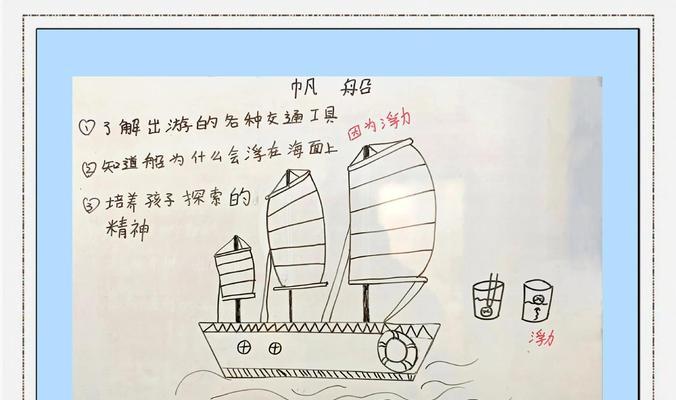 帆 船
① 了解出游的各种交通工具
因为浮力
② 知道船为什么会浮在海面上
③ 培养孩子探索的
精神
浮力